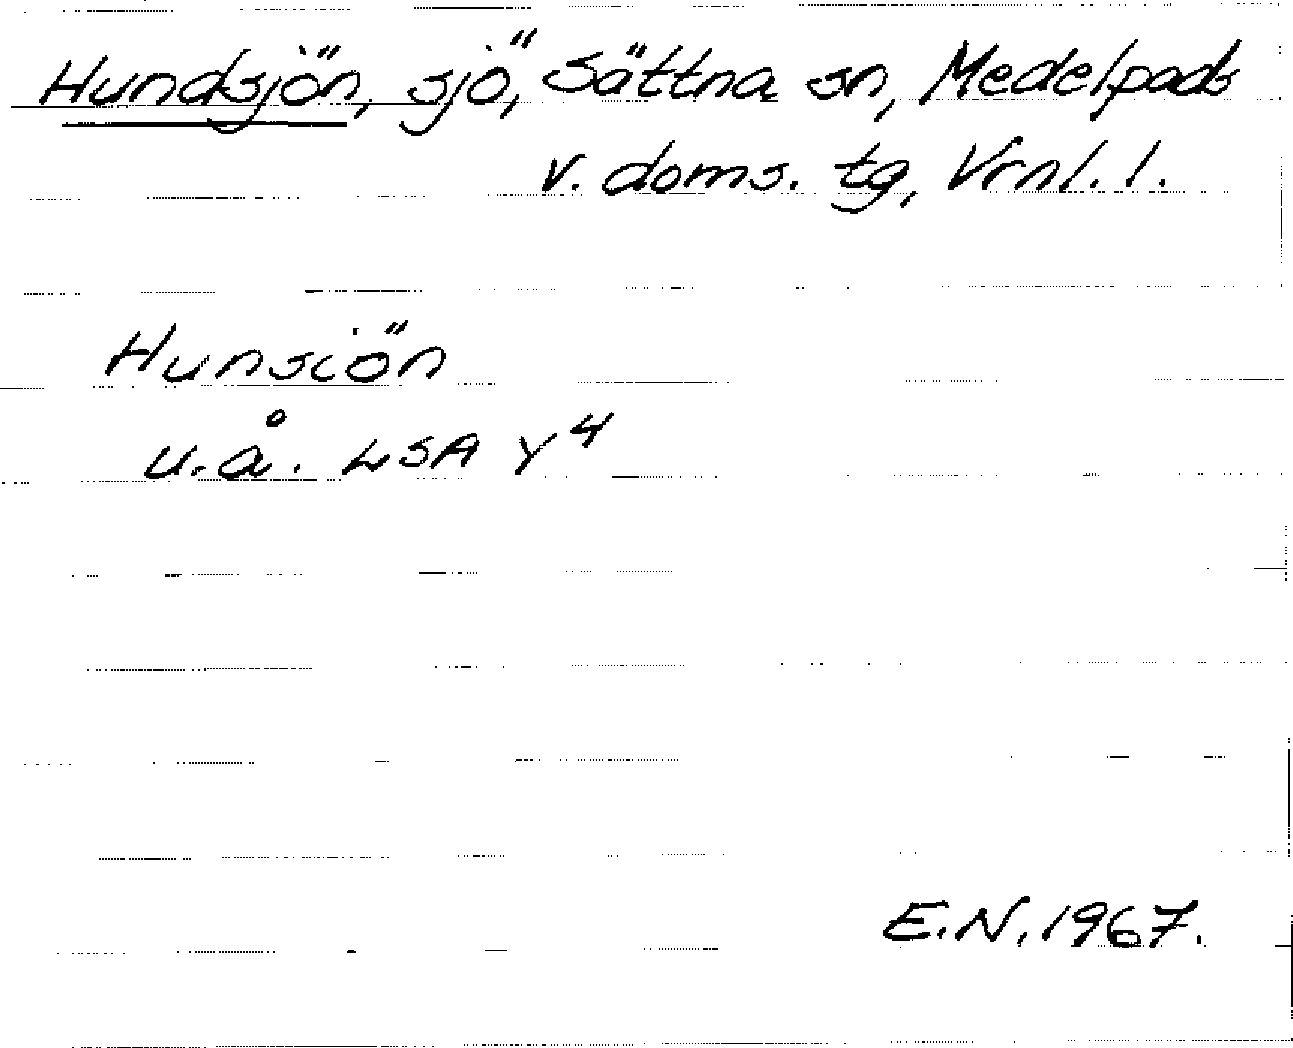 Hundsjön, sjö, Sättna sn, Medelpads
v. doms. tg, Vrnl. l.
Hunsiön
u.å. LSA Y 4
E.N. 1967.